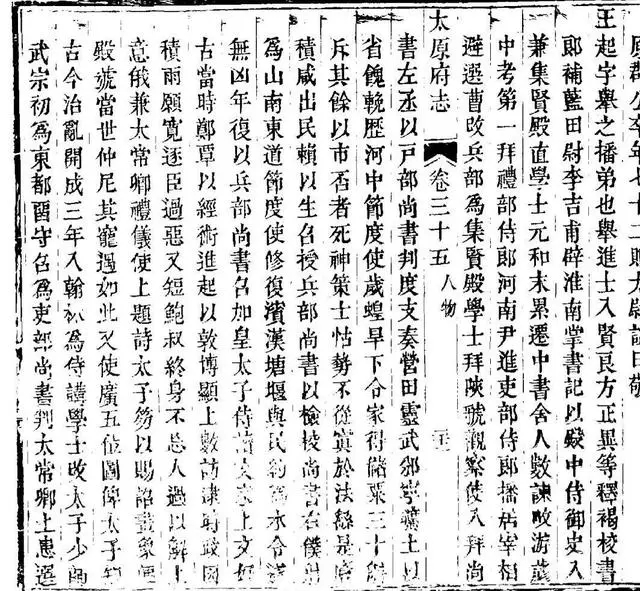 原郡公卒年七十二贈太尉諡曰敬
王起字舉之播弟也舉進士入賢良方正異等釋褐校書
郎補藍田尉李吉甫辟淮南掌書記以殿中侍御史入
兼集賢殿直學士元和末累遷中書舍人數諫畋游
中考第一拜禮部侍郎河南尹進吏部侍郎播居宰相
避選曹改兵部爲集賢殿學士拜陝虢觀察使入拜尚
太原府志 卷三十五 人物
書左丞以戶部尚書判度支奏營田靈武邠寧士以
省餽輓歷河中節度使歲蝗旱下令家得儲粟三十斛
斥其餘以市否者死神策士怙勢不從寘於法繇是廥
積咸出民賴以生召授兵部尚書以檢校尚書右僕射
爲山南東道節度使修復濱漢塘堰與民約爲水令遂
無凶年復以兵部尚書召加皇太子侍讀上文好
古當時鄭覃以經術進起以敦博顯上數訪逮時政因
積雨願寬逐臣過惡又短鮑叔終身不忘人過以解上
意俄兼太常卿禮儀使上題詩太子笏以賜詔畫象便
殿號當世仲尼其寵遇如此又使廣五位圖俾太子知
古今治亂開成三年入翰林爲侍講學士改太子少師
武宗初爲東都留守召爲吏部尚書判太常卿上患選